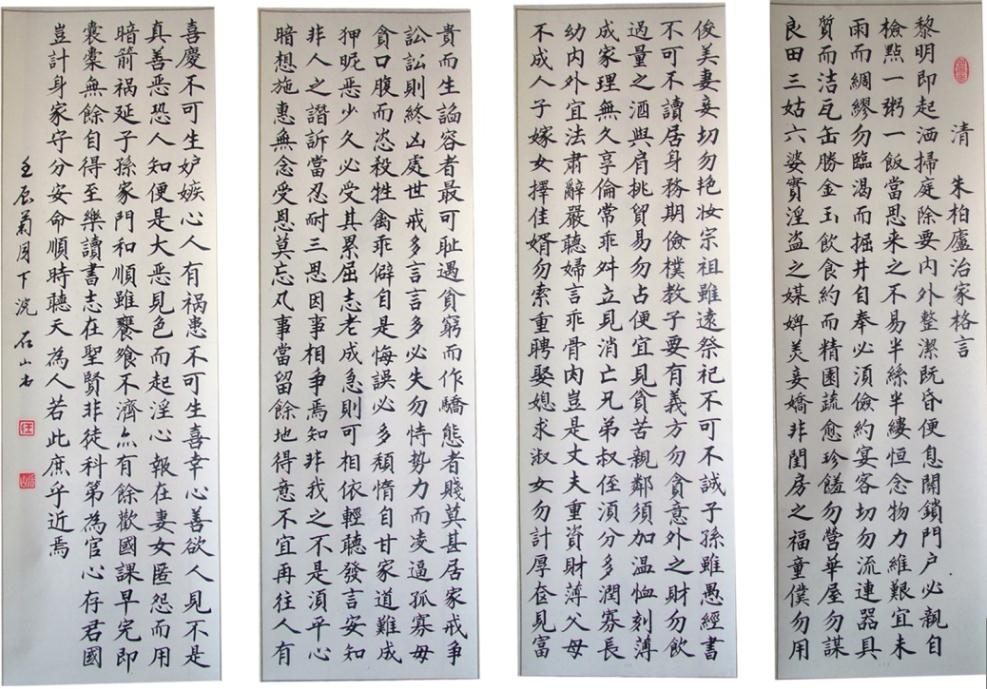 清 朱柏廬治家格言
黎明即起洒掃庭除要内外整潔既昏便息關鎖門户必親自
檢點一粥一飯當思来之不易半絲半縷恒念物力維艱宜未
雨而綢繆勿臨渴而掘井自奉必須儉約宴客切勿流連器具
質而洁瓦缶勝金玉飲食約而精園蔬愈珍饈勿營華屋勿謀
良田三姑六婆實淫盗之媒婢美妾嬌非閨房之福童僕勿用
俊美妻妾切勿艳妆宗祖雖遠祭祀不可不誠子孫雖愚經書
不可不讀居身務期儉樸教子要有義方勿貪意外之財勿飲
過量之酒與肩挑貿易勿占便宜見貧苦親鄰須加温恤刻薄
成家理無久享倫常乖舛立見消亡兄弟叔侄須分多潤寡長
幼内外宜法肅辭嚴聽婦言乖骨肉豈是丈夫重資財薄父母
不成人子嫁女擇佳婿勿索重聘娶媳求淑女勿計厚奩見富
貴而生諂容者最可耻遇貧窮而作驕態者賤莫甚居家戒争
訟訟則終凶處世戒多言言多必失勿恃勢力而凌逼孤寡毋
貪口腹而恣殺牲禽乖僻自是悔誤必多頽惰自甘家道難成
狎昵恶少久必受其累屈志老成急則可相依輕聽發言安知
非人之譖訴當忍耐三思因事相争焉知非我之不是須平心
暗想施惠無念受恩莫忘凡事當留餘地得意不宜再往人有
喜慶不可生妒嫉心人有祸患不可生喜幸心善欲人見不是
真善恶恐人知便是大恶見色而起淫心報在妻女匿怨而用
暗箭祸延子孫家門和順雖饔飧不濟亦有餘歡國課早完即
囊橐無餘自得至樂讀書志在聖賢非徒科第為官心存君國
豈計身家守分安命順時聽天為人若此庶乎近焉
壬辰菊月下浣 石山书